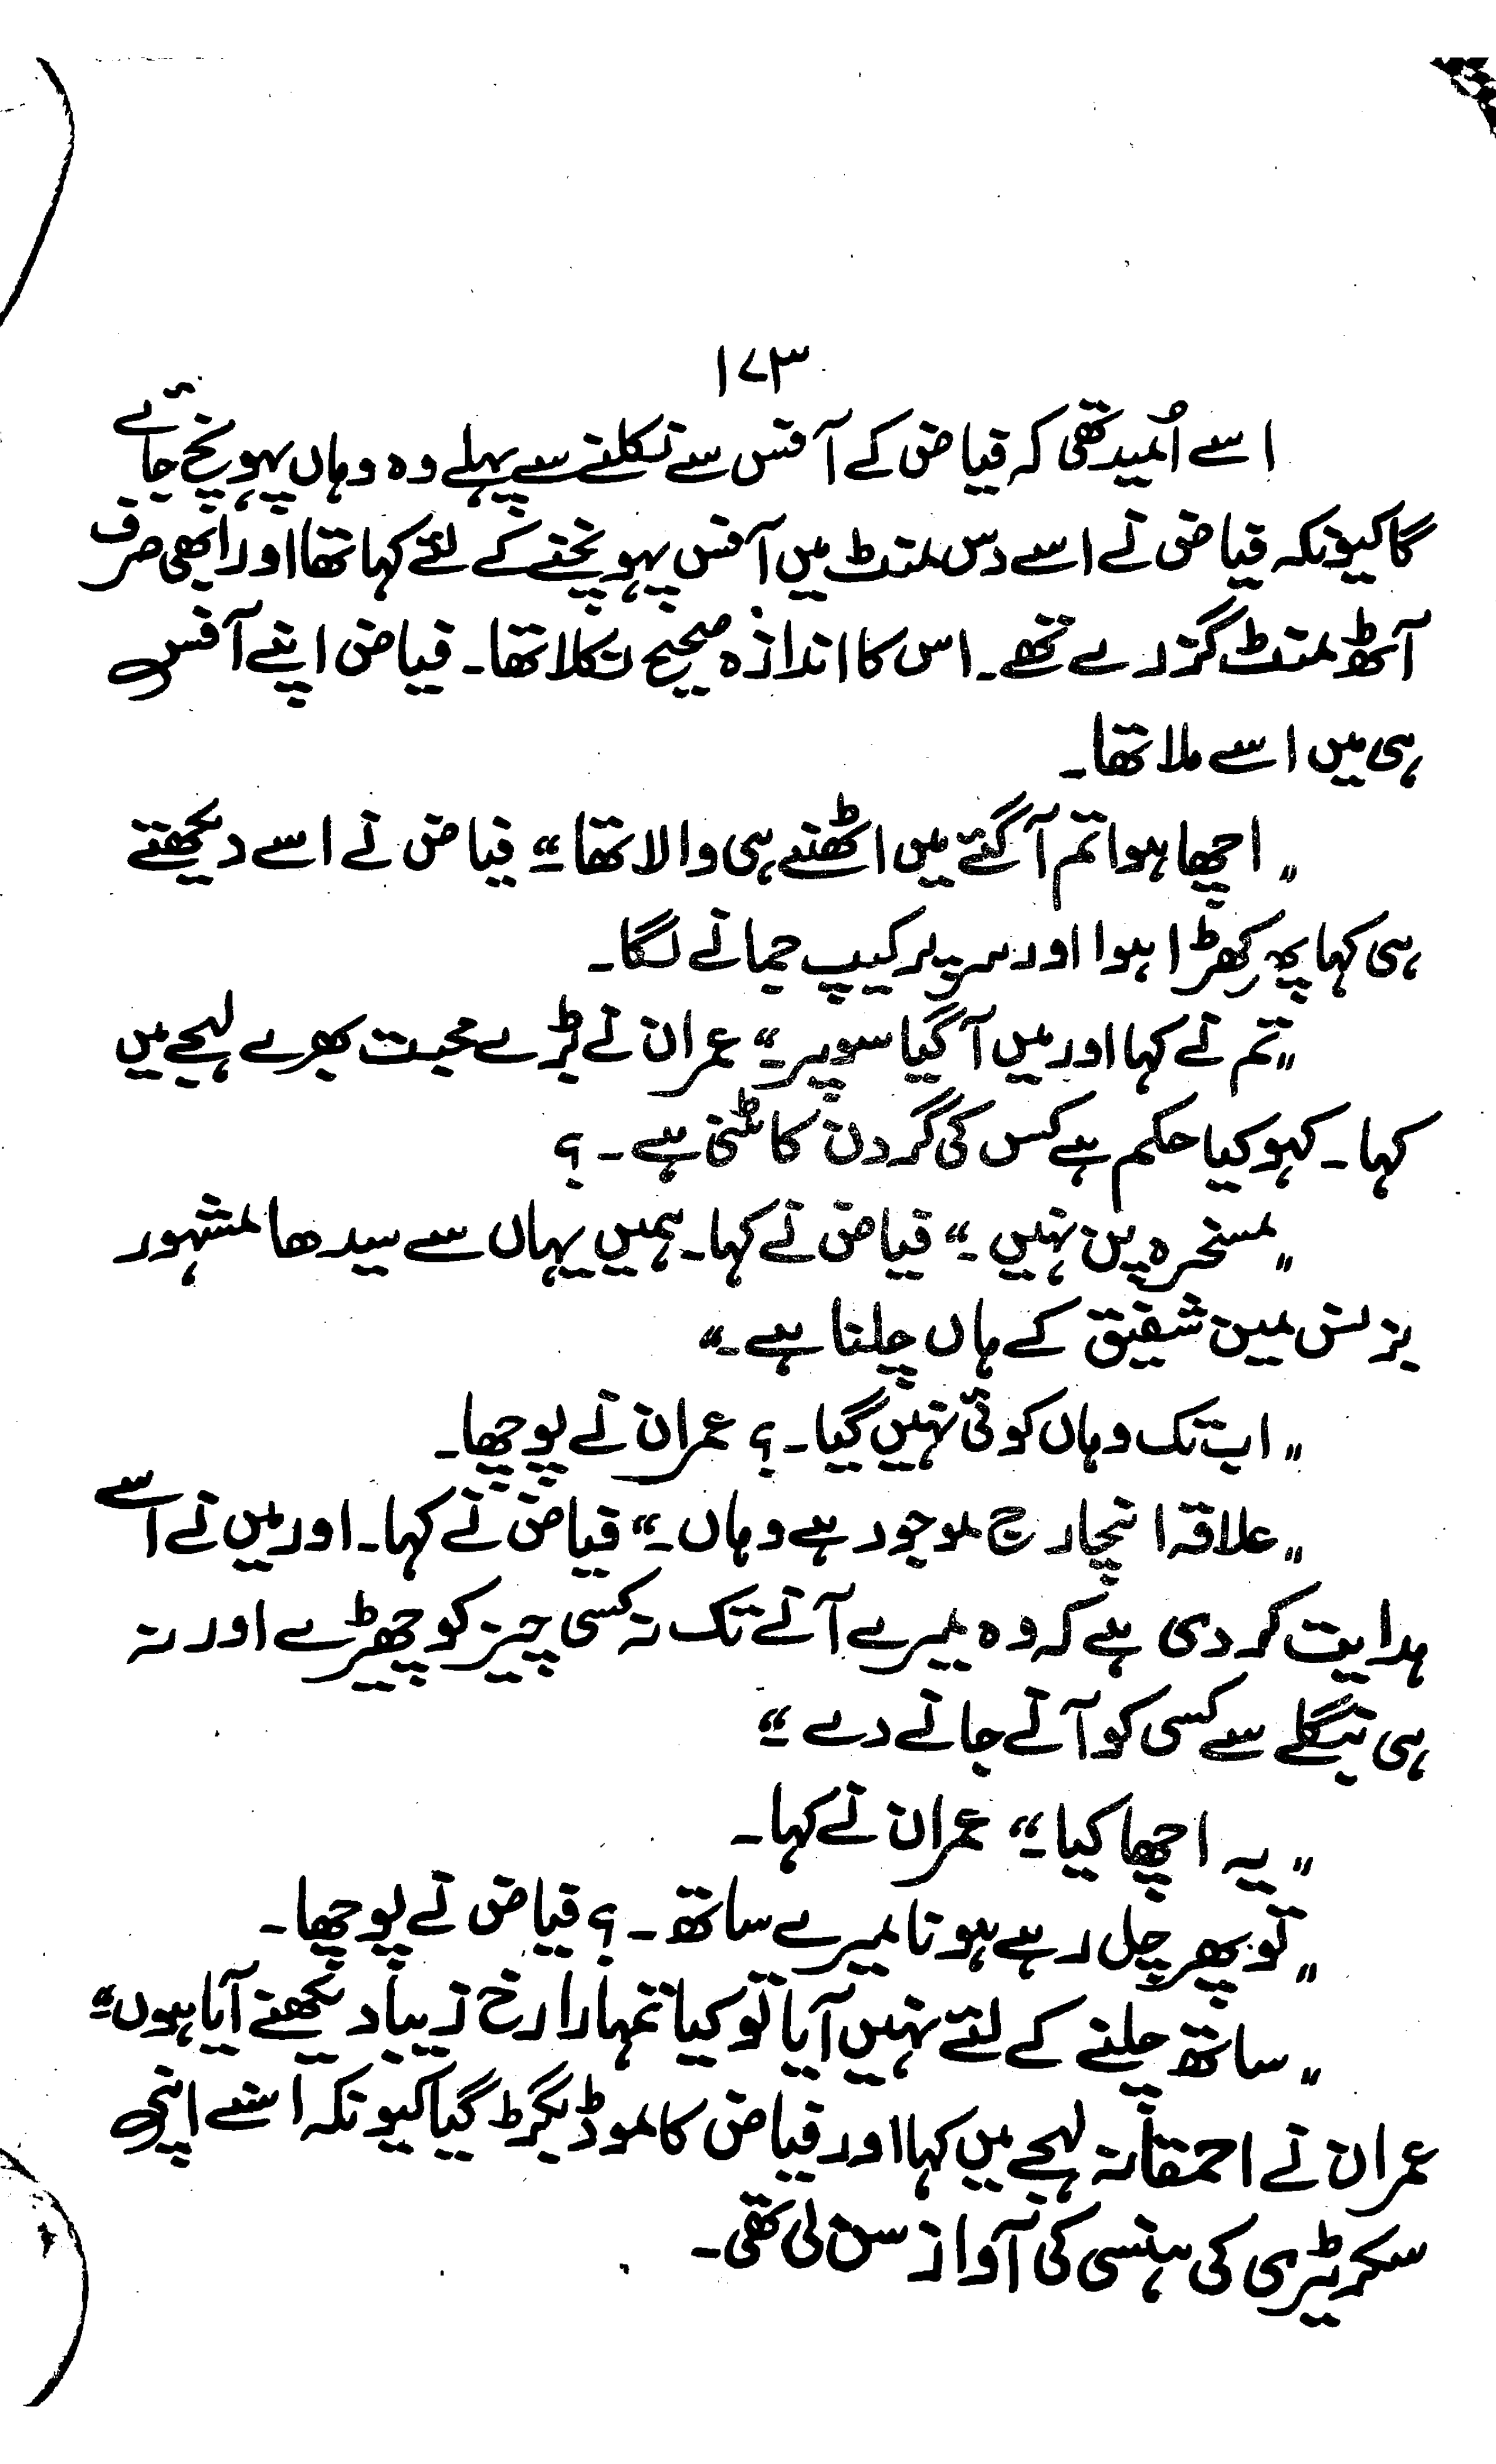 ۱۷۳
اسے اُمید تھی کہ فیاض کے آفس سے نکلنے سے پہلے وہ وہاں پہونچ جائے
گا کیونکہ فیاض نے اسے دس منٹ میں آفس پہونچنے کے لئے کہا تھا اور ابھی صرف
آٹھ منٹ گزرے تھے۔ اس کا اندازہ صحیح نکلا تھا۔ فیاض اپنے آفس
ہی میں اسے ملا تھا۔
"اچھا ہوا تم آ گئے میں اٹھنے ہی والا تھا۔" فیاض نے اسے دیکھتے
ہی کہا پھر کھڑا ہوا اور سر پر کیپ جمانے لگا۔
"تم نے کہا اور میں آ گیا سوپر۔" عمران نے بڑے محبت بھرے لہجے میں
کہا۔ کہو کیا حکم ہے کس کی گردن کاٹنی ہے۔؟
"مسخرہ پن نہیں۔" فیاض نے کہا۔ ہمیں یہاں سے سیدھا مشہور
بزنس مین شفیق کے ہاں چلنا ہے۔"
"اب تک وہاں کوئی نہیں گیا۔؟ عمران نے پوچھا۔
"علاقہ انچارج موجود ہے وہاں۔" فیاض نے کہا۔ اور میں نے اسے
ہدایت کر دی ہے کہ وہ میرے آنے تک نہ کسی چیز کو چھڑے اور نہ
ہی بنگلے سے کسی کو آنے جانے دے۔"
"یہ اچھا کیا۔" عمران نے کہا۔
"تو پھر چل رہے ہو نا میرے ساتھ۔؟ فیاض نے پوچھا۔
"ساتھ چلنے کے لئے نہیں آیا تو کیا تمہارا رخ زیبا دیکھنے آیا ہوں۔"
عمران نے احمقانہ لہجے میں کہا اور فیاض کا موڈ بگڑ گیا کیونکہ اسنے اپنی
سکریٹری کی ہنسی کی آواز سن لی تھی۔